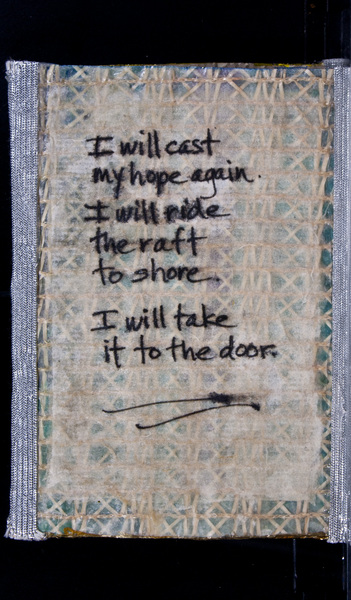 I will cast
my hope again.
I will ride
the raft
to shore.
I will take
it to the door.